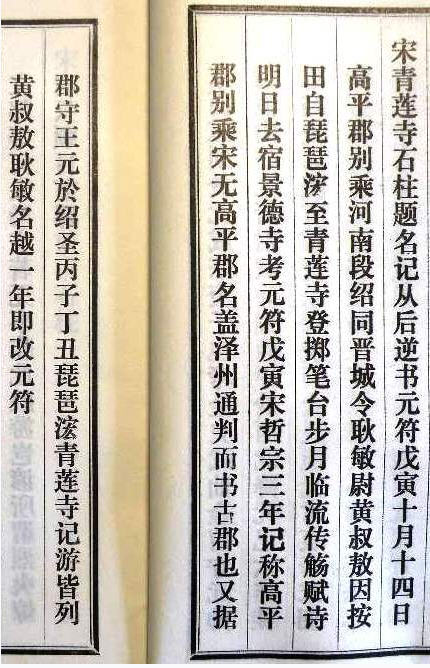 宋青莲寺石柱题名记从后逆书元符戊寅十月十四日
高平郡别乘河南段绍同晋城令耿敏尉黄叔敖因按
田自琵琶浤至青莲寺登掷笔台步月临流传觞赋诗
明日去宿景德寺考元符戊寅宋哲宗三年记称高平
郡别乘宋无高平郡名盖泽州通判而书古郡也又据
郡守王元於绍圣丙子丁丑琵琶浤青莲寺记游皆列
黄叔敖耿敏名越一年即改元符